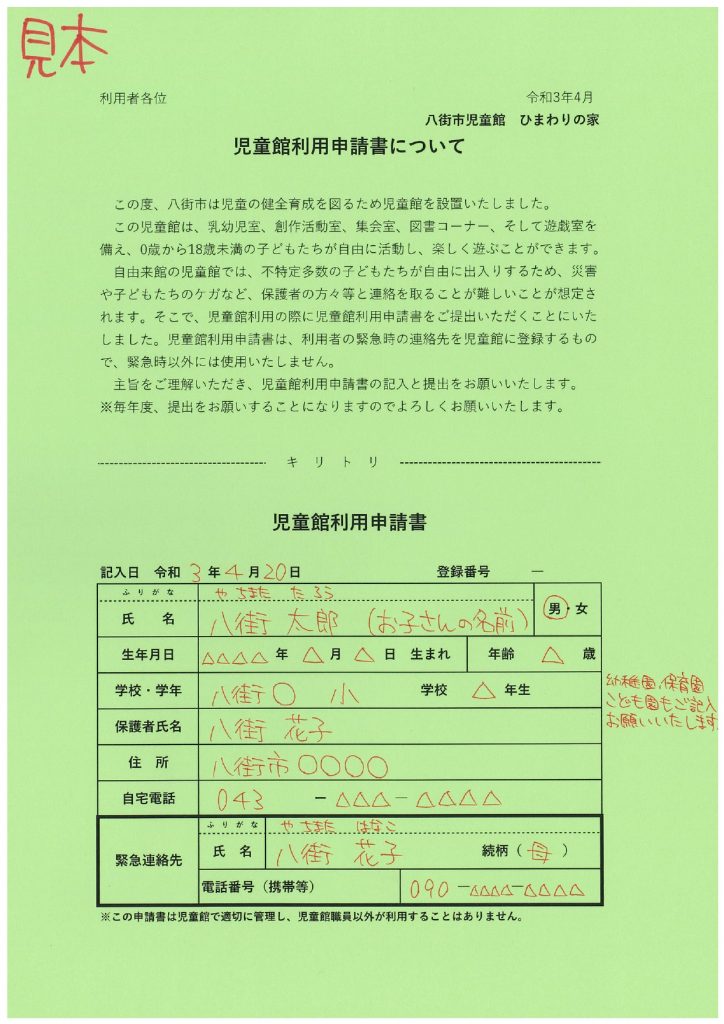 見本
利用者各位
令和3年4月
八街市児童館 ひまわりの家
児童館利用申請書について
この度、八街市は児童の健全育成を図るため児童館を設置いたしました。
この児童館は、乳幼児室、創作活動室、集会室、図書コーナー、そして遊戯室を
備え、0歳から18歳未満の子どもたちが自由に活動し、楽しく遊ぶことができます。
自由来館の児童館では、不特定多数の子どもたちが自由に出入りするため、災害
や子どもたちのケガなど、保護者の方々等と連絡を取ることが難しいことが想定さ
れます。そこで、児童館利用の際に児童館利用申請書をご提出いただくことにいた
しました。児童館利用申請書は、利用者の緊急時の連絡先を児童館に登録するもの
で、緊急時以外には使用いたしません。
主旨をご理解いただき、児童館利用申請書の記入と提出をお願いいたします。
※毎年度、提出をお願いすることになりますのでよろしくお願いいたします。
キリトリ
児童館利用申請書
記入日 令和 3 年 4 月 20 日 登録番号 ―
ふりがな やちまた たろう
氏名 八街 太郎 (お子さんの名前) 男・女
生年月日 △△△△ 年 △ 月 △ 日 生まれ 年齢 △ 歳
学校・学年 八街○ 小 学校 △ 年生
幼稚園、保育園
こども園もご記入
お願いいたします
保護者氏名 八街 花子
住所 八街市○○○○
自宅電話 043 －△△△－△△△△
緊急連絡先
ふりがな やちまた はなこ
氏名 八街 花子 続柄（母）
電話番号（携帯等） 090－△△△△－△△△△
※この申請書は児童館で適切に管理し、児童館職員以外が利用することはありません。